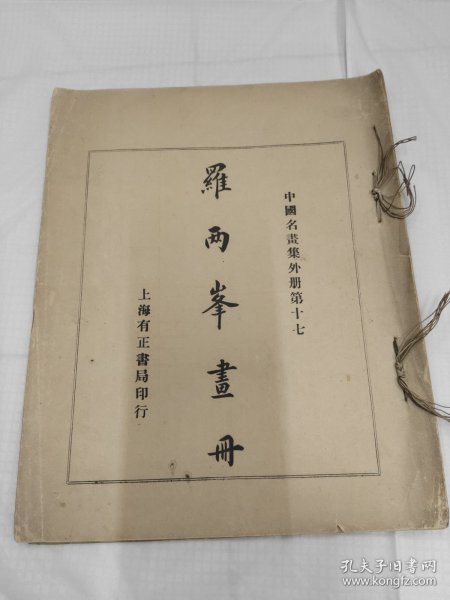 中國名畫集外册第十七
羅兩峯畫冊
上海有正書局印行
孔夫子旧书网
www.kongfz.com